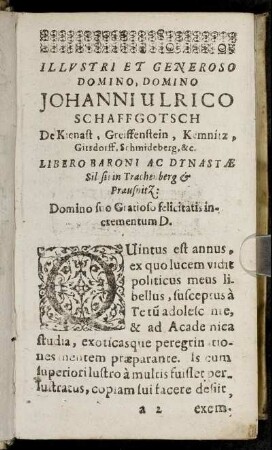 ILLVSTRI ET GENEROSO
DOMINO, DOMINO
JOHANNI ULRICO
SCHAFFGOTSCH
De Kienast, Greiffenstein, Kemnitz,
Girsdorff, Schmideberg, &c.
LIBERO BARONI AC DYNASTÆ
in Trachenberg &
Prausnitz:
Domino suo Gratioso felicitatis in-
crementum D.
QUintus est annus,
ex quo lucem vidit
politicus meus li-
bellus, susceptus à
Te tū adolescente,
& ad Academica
studia, exoticasque peregrinatio-
nes mentem præparante. Is cum
superiori lustro à multis fuisset per-
lustratus, copiam sui facere desiit,
a 2 exem-